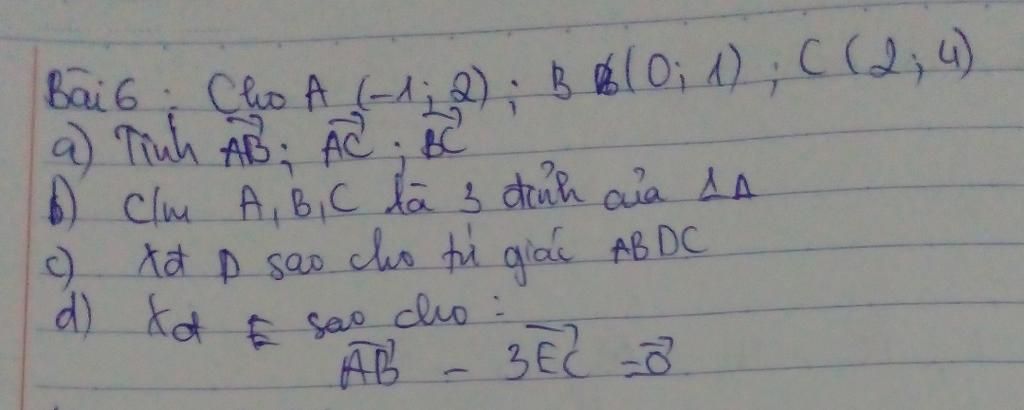 Bài 6 : Cho A (-1; 2) ; B (0; 1) ; C (2; 4)
a) Tính \overrightarrow{AB}; \overrightarrow{AC}; \overrightarrow{BC}
b) c/m A, B, C là 3 đỉnh của 1 Δ
c) Xđ D sao cho tứ giác ABDC
d) Xđ E sao cho :
\overrightarrow{AB} - 3\overrightarrow{EC} = \vec{0}